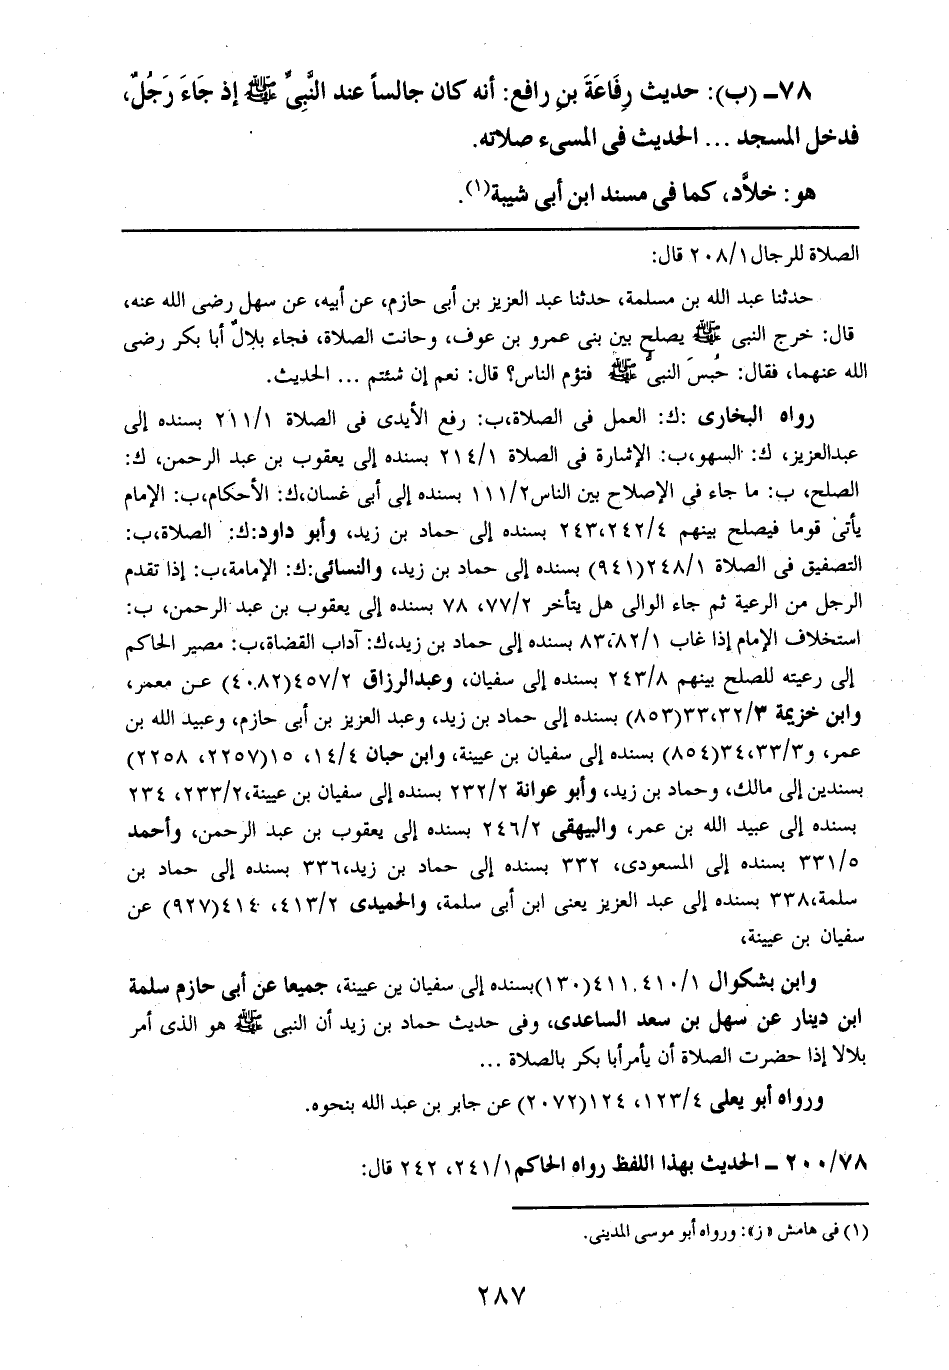 ٧٨ـ (ب): حديث رِفَاعَةَ بنِ رافع: أنه كان جالساً عند النَّبِىِّ ﷺ إذ جَاءَ رَجُلٌ،
فدخل المسجد ... الحديث فى المسىء صلاته.
هو: خلاَّد، كما فى مسند ابن أبى شيبة(١).
الصلاة للرجال ٢٠٨/١ قال:
حدثنا عبد الله بن مسلمة، حدثنا عبد العزيز بن أبى حازم، عن أبيه، عن سهل رضى الله عنه،
قال: خرج النبى ﷺ يصلح بين بنى عمرو بن عوف، وحانت الصلاة، فجاء بلالٌ أبا بكر رضى
الله عنهما، فقال: حُبسَ النبىُّ ﷺ فتؤم الناس؟ قال: نعم إن شئتم ... الحديث.
رواه البخارى :ك: العمل فى الصلاة،ب: رفع الأيدى فى الصلاة ٢١١/١ بسنده إلى
عبدالعزيز، ك: السهو،ب: الإشارة فى الصلاة ٢١٤/١ بسنده إلى يعقوب بن عبد الرحمن، ك:
الصلح، ب: ما جاء فى الإصلاح بين الناس١١١/٢ بسنده إلى أبى غسان،ك: الأحكام،ب: الإمام
يأتى قوما فيصلح بينهم ٢٤٣،٢٤٢/٤ بسنده إلى حماد بن زيد، وأبو داود:ك: الصلاة،ب:
التصفيق فى الصلاة ٢٤٨/١(٩٤١) بسنده إلى حماد بن زيد، والنسائى:ك: الإمامة،ب: إذا تقدم
الرجل من الرعية ثم جاء الوالى هل يتأخر ٧٧/٢، ٧٨ بسنده إلى يعقوب بن عبد الرحمن، ب:
استخلاف الإمام إذا غاب ٨٣،٨٢/١ بسنده إلى حماد بن زيد،ك: آداب القضاة،ب: مصير الحاكم
إلى رعيته للصلح بينهم ٢٤٣/٨ بسنده إلى سفيان، وعبدالرزاق ٤٥٧/٢(٤٠٨٢) عـن معمر،
وابن خزيمة ٣٣،٣٢/٣(٨٥٣) بسنده إلى حماد بن زيد، وعبد العزيز بن أبى حازم، وعبيد الله بن
عمر، و٣٤،٣٣/٣(٨٥٤) بسنده إلى سفيان بن عيينة، وابن حبان ١٤/٤، ١٥(٢٢٥٧، ٢٢٥٨)
بسندين إلى مالك، وحماد بن زيد، وأبو عوانة ٢٣٢/٢ بسنده إلى سفيان بن عيينة،٢٣٣/٢، ٢٣٤
بسنده إلى عبيد الله بن عمر، والبيهقى ٢٤٦/٢ بسنده إلى يعقوب بن عبد الرحمن، وأحمد
٣٣١/٥ بسنده إلى المسعودى، ٣٣٢ بسنده إلى حماد بن زيد،٣٣٦ بسنده إلى حماد بن
سلمة،٣٣٨ بسنده إلى عبد العزيز يعنى ابن أبى سلمة، والحميدى ٤١٣/٢، ٤١٤(٩٢٧) عن
سفيان بن عيينة،
وابن بشكوال ٤١١،٤١٠/١(١٣٠)بسنده إلى سفيان بن عيينة، جميعا عن أبى حازم سلمة
ابن دينار عن سهل بن سعد الساعدى، وفى حديث حماد بن زيد أن النبى ﷺ هو الذى أمر
بلالا إذا حضرت الصلاة أن يأمرأبا بكر بالصلاة ...
ورواه أبو يعلى ١٢٣/٤، ١٢٤(٢٠٧٢) عن جابر بن عبد الله بنحوه.
٢٠٠/٧٨ ـ الحديث بهذا اللفظ رواه الحاكم٢٤١/١، ٢٤٢ قال:
(١) فى هامش «ز»: ورواه أبو موسى المدينى.
٢٨٧